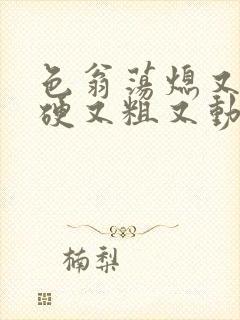 色翁荡熄又
硬又粗又動
楠梨